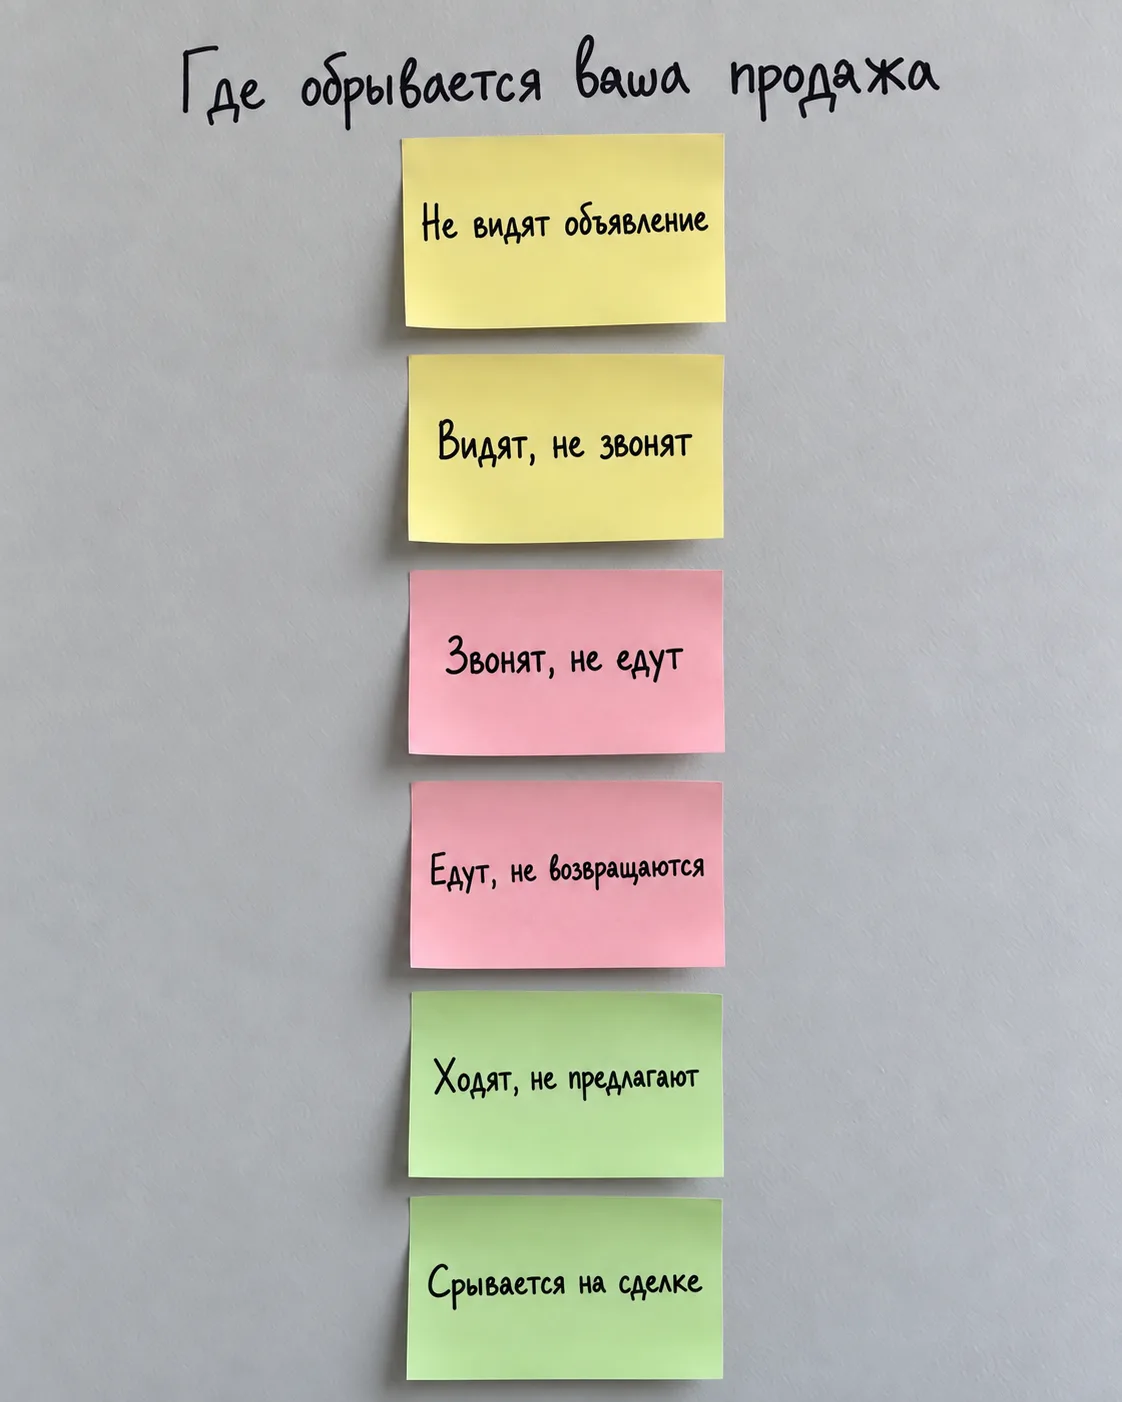 Где обрывается ваша продажа
Не видят объявление
Видят, не звонят
Звонят, не едут
Едут, не возвращаются
Ходят, не предлагают
Срывается на сделке